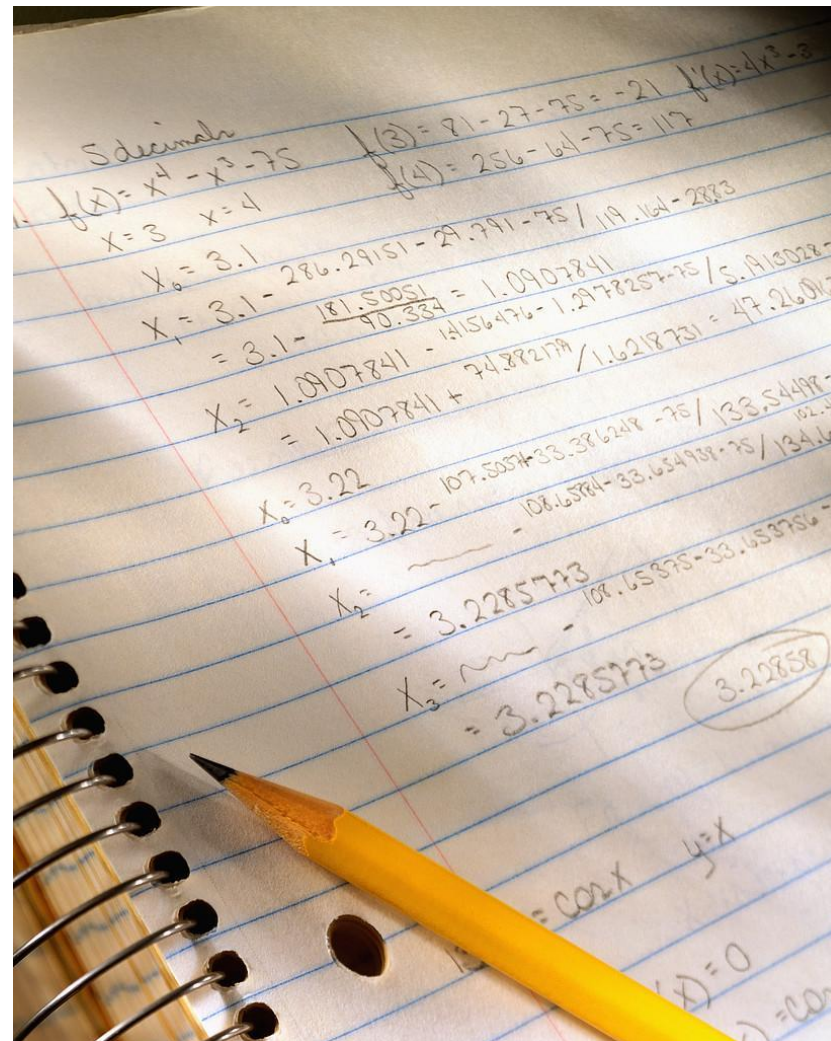 5 decimals
1. f(x) = x⁴ - x³ - 75 f(3) = 81 - 27 - 75 = -21 f'(x) = 4x³ - 3
x = 3 x = 4 f(4) = 256 - 64 - 75 = 117
x₀ = 3.1
x₁ = 3.1 - 286.29151 - 29.791 - 75 / 119.164 - 28.83
= 3.1 - 181.50051 / 90.334 = 1.0907841
x₂ = 1.0907841 - 1.4156476 - 1.2978257 - 75 / 5.1913028 -
= 1.0907841 + 74.882179 / 1.6218731 = 47.2609
x₀ = 3.22
x₁ = 3.22 - 107.5037 - 33.386248 - 75 / 133.54498 -
- 108.65884 - 33.654938 - 75 / 134.6
x₂ =
= 3.2285773
- 108.65375 - 33.653756 -
x₃ =
= 3.2285773 3.22858
= cos x y = x
(x) = 0
) = co